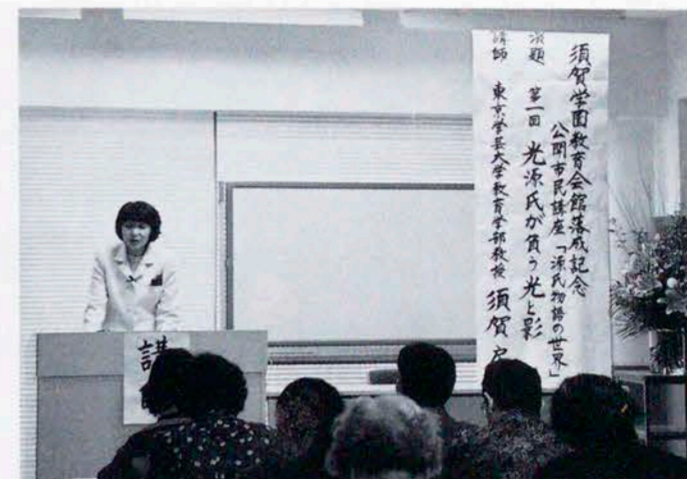 須賀学園教育会館落成記念
公開市民講座「源氏物語の世界」
演題 第一回 光源氏が負う光と影
講師 東京学芸大学教育学部教授 須賀
講